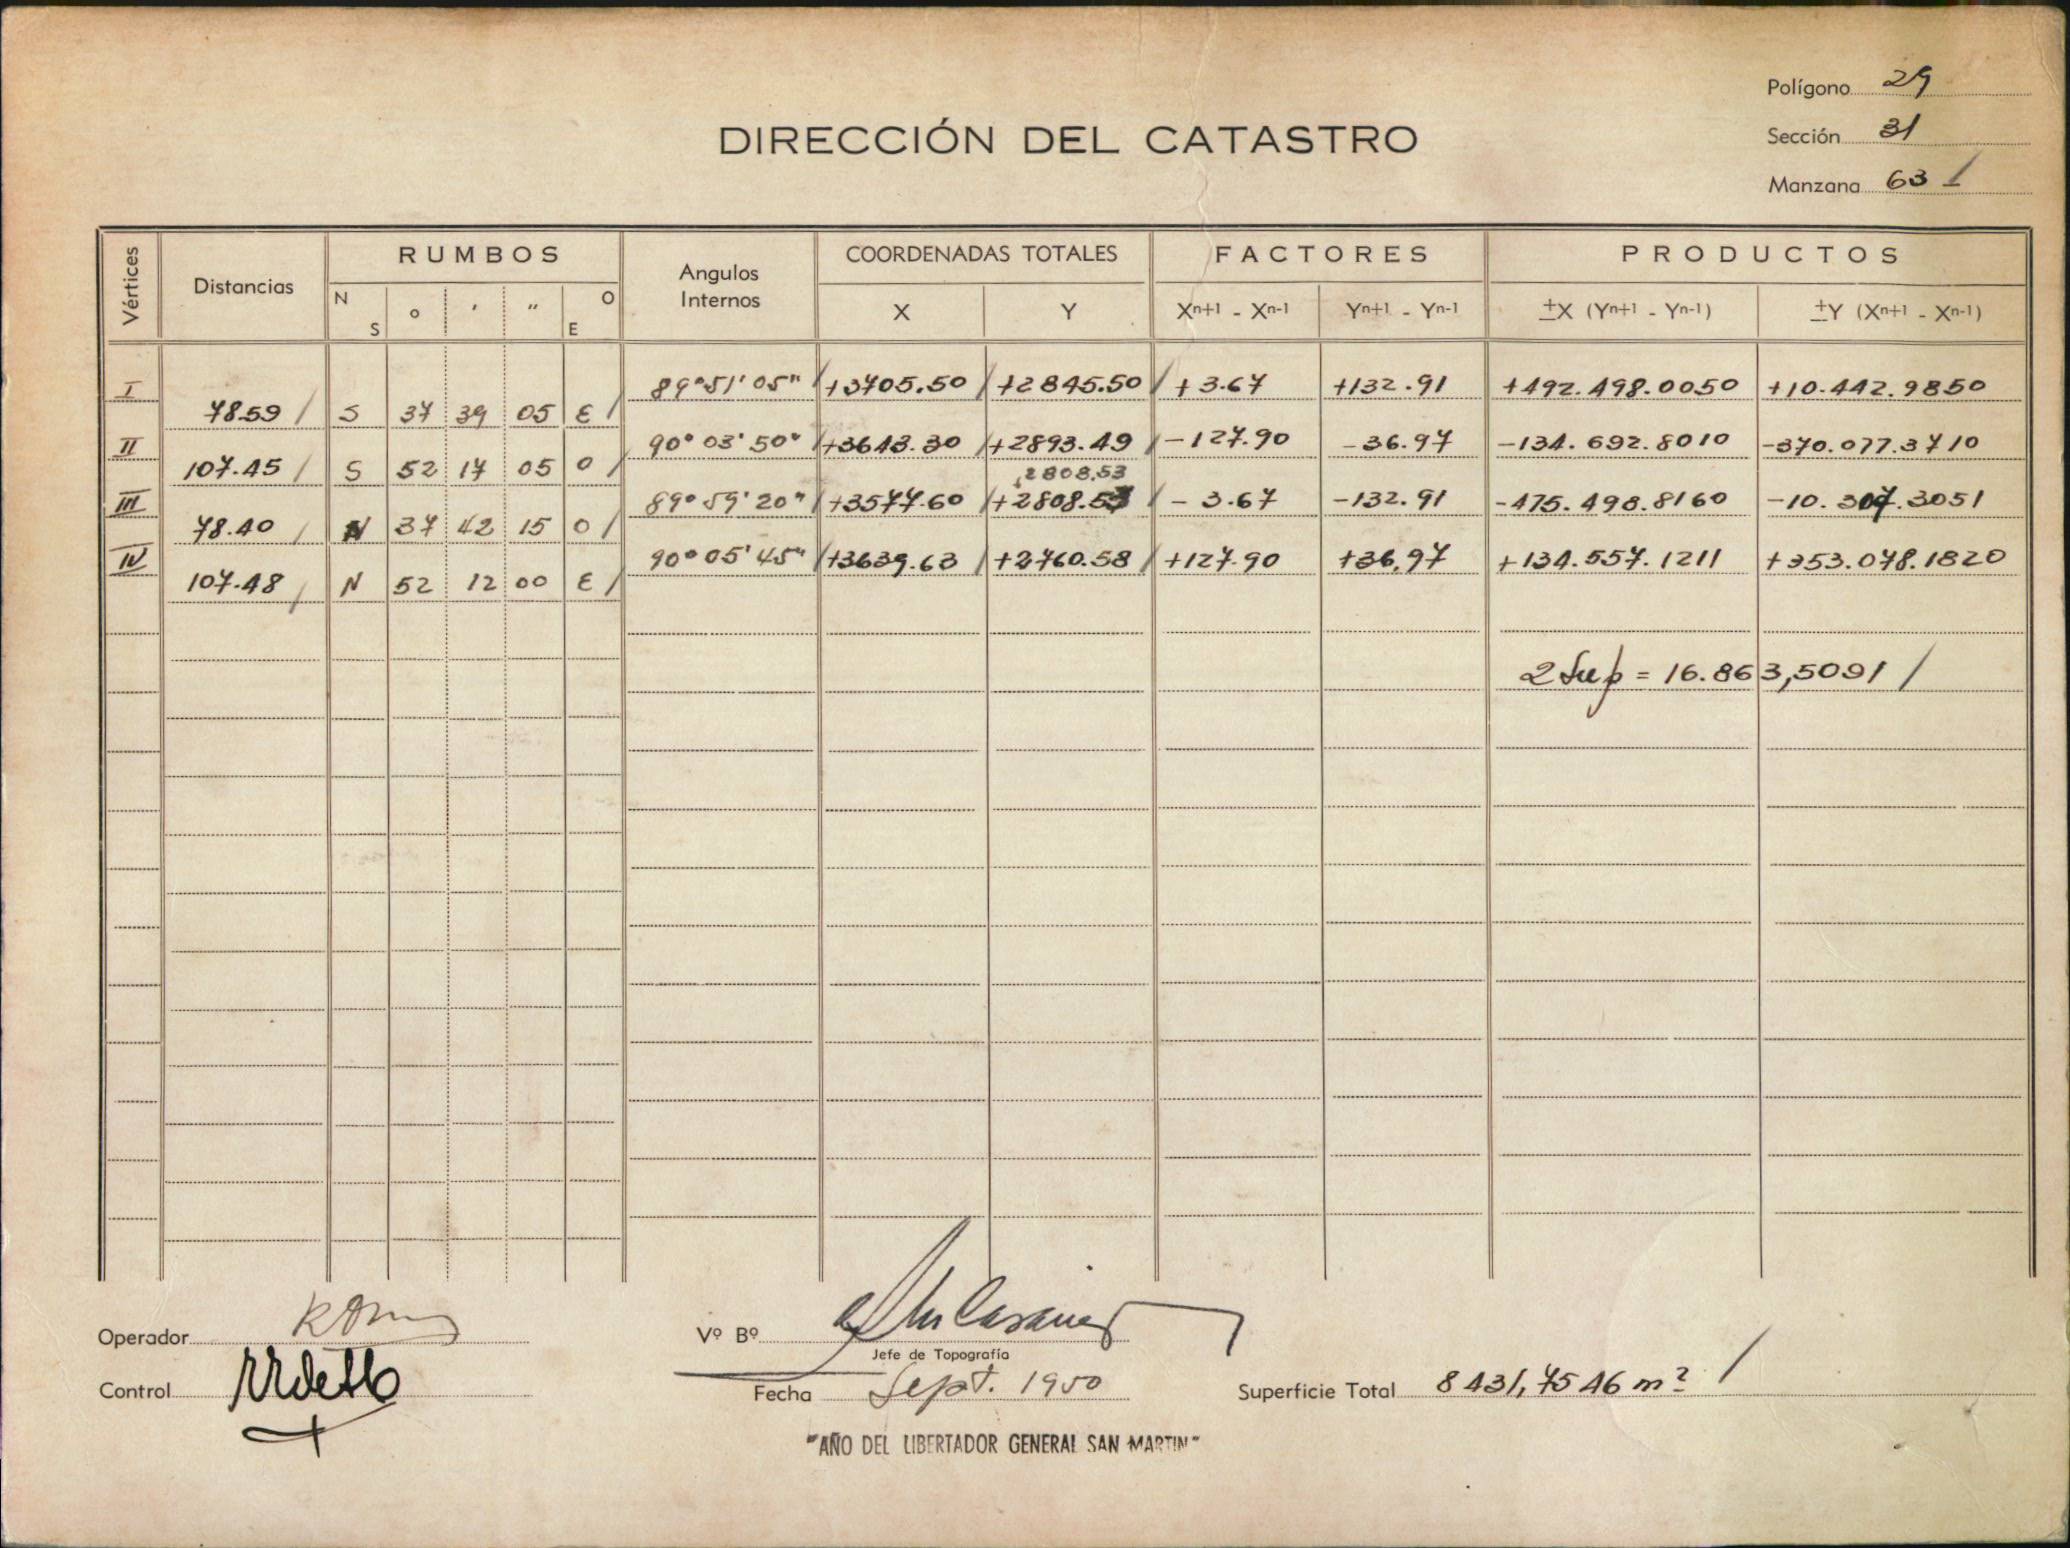 Polígono 29
DIRECCIÓN DEL CATASTRO
Sección 31
Manzana 63
Vértices Distancias RUMBOS Angulos Internos COORDENADAS TOTALES FACTORES PRODUCTOS
N S o ' " O E X Y Xn+1 - Xn-1 Yn+1 - Yn-1 ±X (Yn+1 - Yn-1) ±Y (Xn+1 - Xn-1)
I 89°51'05" +3705.50 +2845.50 +3.67 +132.91 +492.498.0050 +10.442.9850
78.59 S 37 39 05 E
II 90°03'50" +3643.30 +2893.49 -127.90 -36.97 -134.692.8010 -370.077.3710
107.45 S 52 17 05 O
2808,53
III 89°59'20" +3577.60 +2808.53 -3.67 -132.91 -475.498.8160 -10.307.3051
78.40 N 37 42 15 O
IV 90°05'45" +3639.63 +2760.58 +127.90 +36,97 +134.557.1211 +353.078.1820
107.48 N 52 12 00 E
2 Sup = 16.863,5091
Operador
Vº Bº
Jefe de Topografía
Control
Fecha Sept. 1950
Superficie Total 8431,7546 m²
"AÑO DEL LIBERTADOR GENERAL SAN MARTIN"